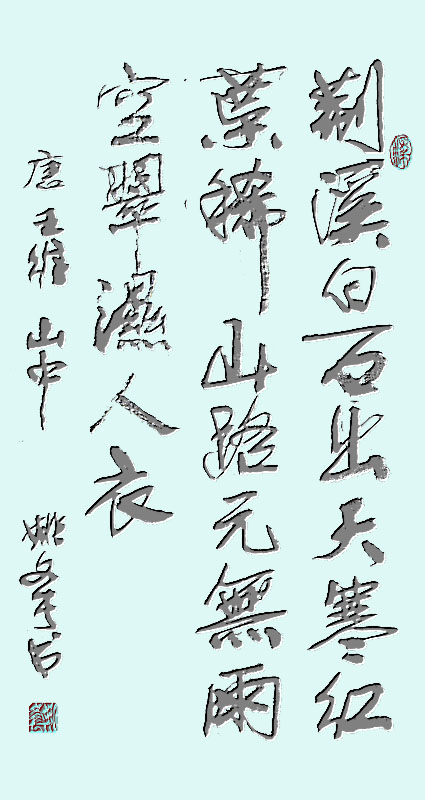 荊溪白石出天寒红
葉稀山路元無雨
空翠濕人衣
唐王維山中 姚